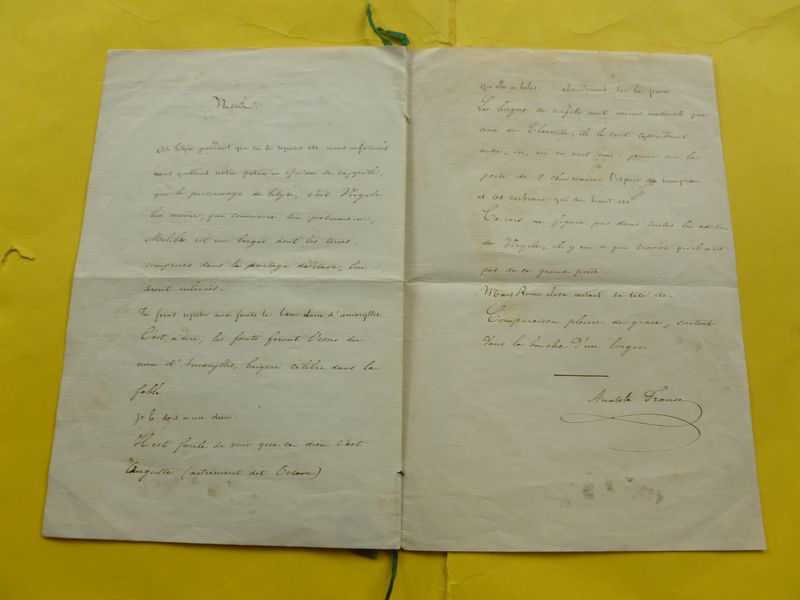 Notes
O Tityre pendant que tu te reposes etc. nous infortunés
nous quittons notre patrie — Qu'on se rappelle,
que le personnage de Tityre, c'est Virgile
lui même, qui conserve son patrimoine,
Mélibée est un berger dont les terres,
comprises dans le partage d'Octave, lui
seront enlevées.
Tu feras repeter aux forêts le beau nom d'amaryllis.
C'est à dire, les forêts feront l'écho du
nom d'Amaryllis, bergère célèbre dans la
fable
je le dois a un dieu.
Il est facile de voir que ce dieu c'est
Auguste (autrement dit Octave)
qu'elle a helas... abandonnés sur la pierre
Les bergers de virgile sont moins naturels que
ceux de Théocrite, ils le sont cependant
aussi, ici, on en voit un, pleurer sur la
perte de 2 chevreaux l'espoir du troupeau
et ces corbeaux qui du haut etc
Ce vers ne figure pas dans toutes les editions
de Virgile, il y en a qui croient qu'il n'est
pas de ce grand poète.
Mais Rome eleve autant sa tête etc.
Comparaison pleine de grace, surtout
dans la bouche d'un berger.
Anatole France